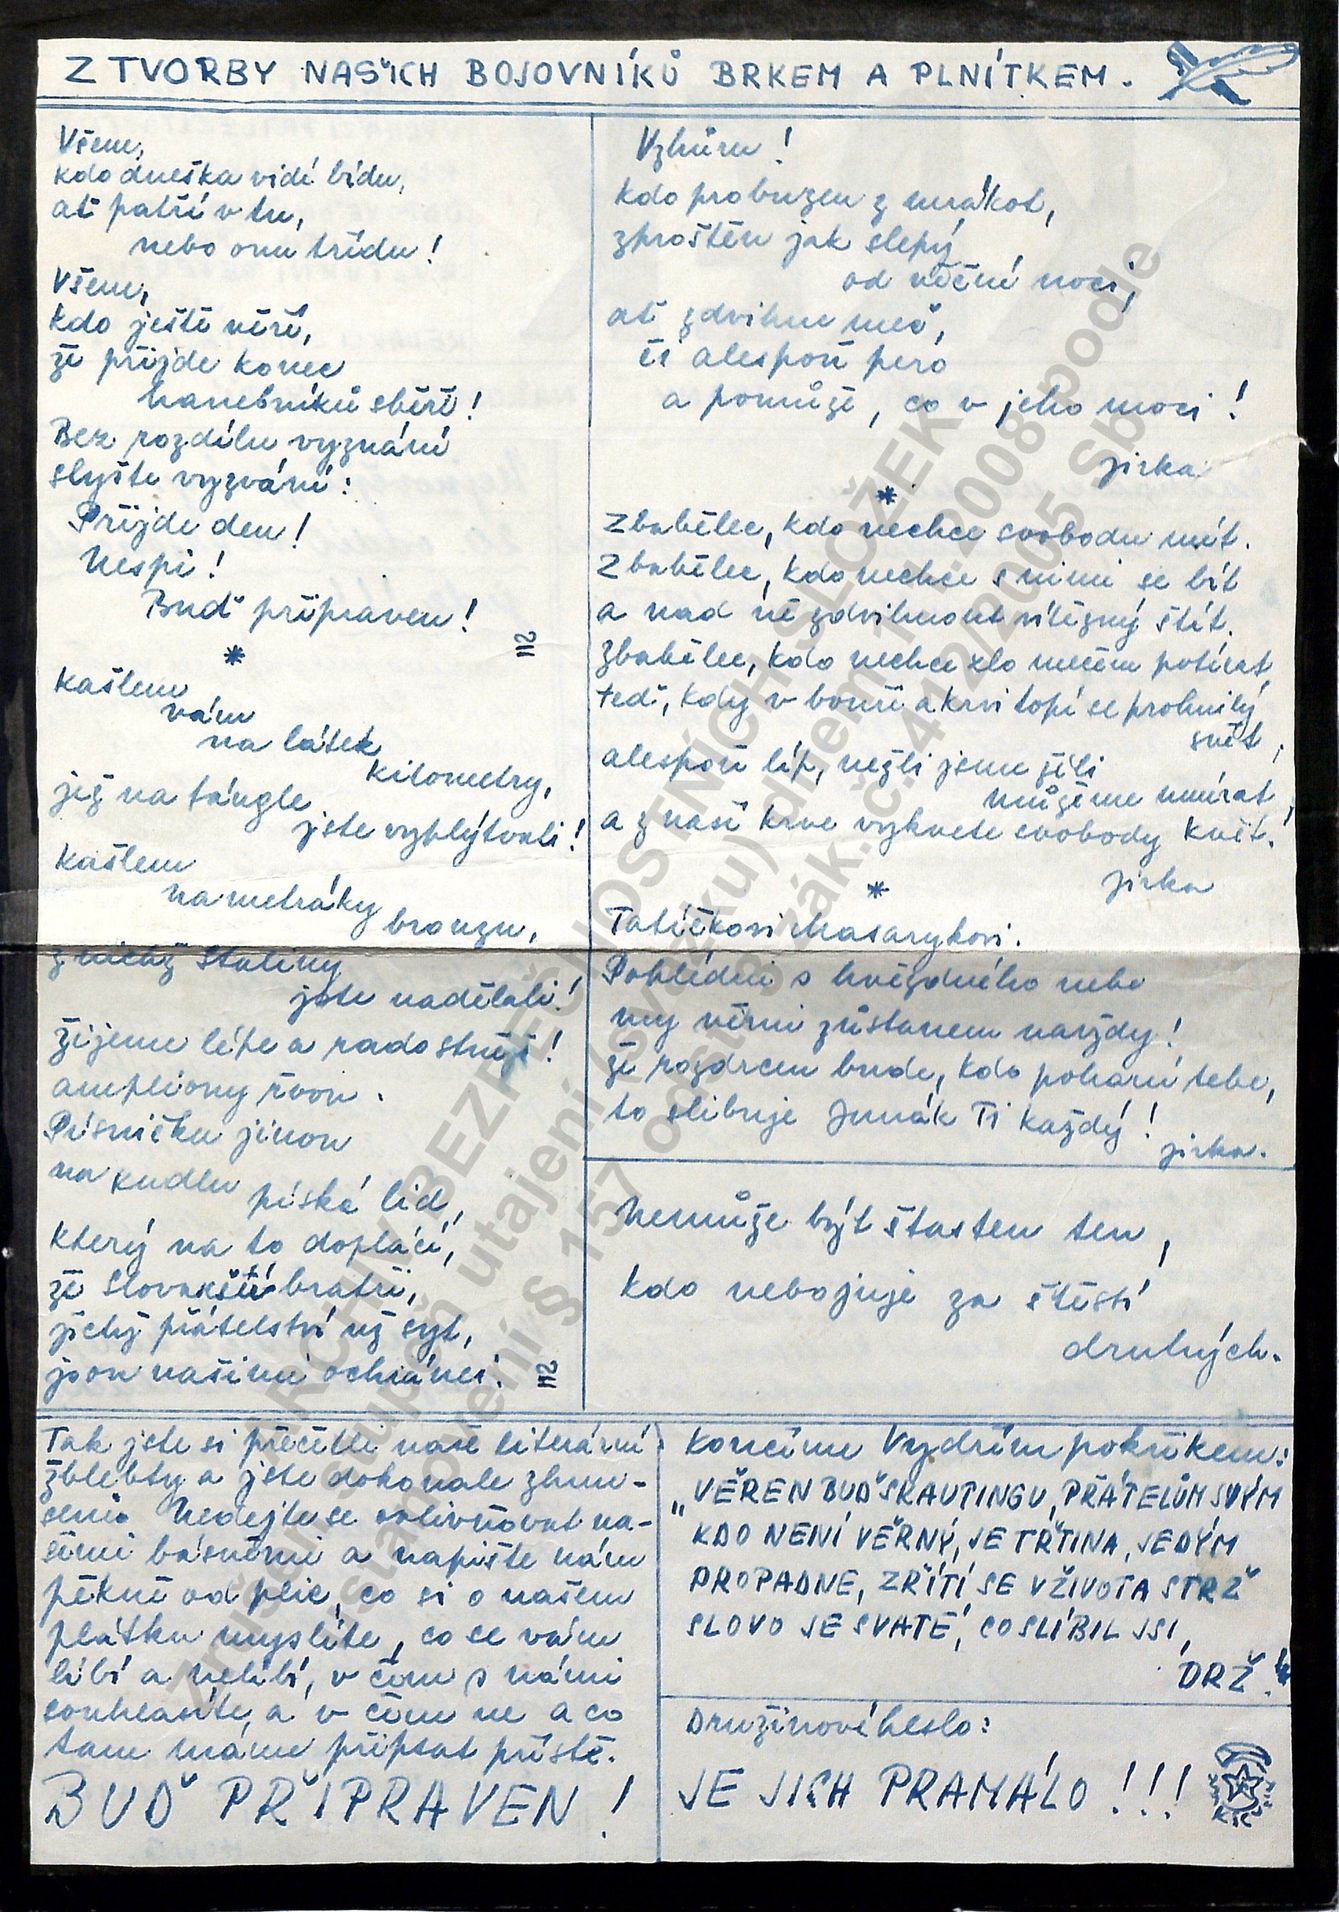 Z TVORBY NAŠICH BOJOVNÍKŮ BRKEM A PLNÍTKEM.
Všem,
kdo dneška vidí bídu,
ať patří v tu,
nebo onu třídu!
Všem,
kdo ještě věří,
že přijde konec
hanebníků sběři!
Bez rozdílu vyznání
slyšte vyzvání:
Přijde den!
Nespi!
Buď připraven!
*
Kašlem
vám
na látek
kilometry,
jež na fángle
jste vyplýtvali!
Kašlem
na metráky
bronzu,
z nichž Staliny
jste nadělali!
Žijeme lépe a radostněji!
ampliony řvou.
Písničku jinou
na kudlu
píská lid,
který na to doplácí,
že Slovanští bratři,
jichž přátelství už syt,
jsou našimi ochránci!
Vzhůru!
Kdo probuzen z mrákot,
zproštěn jak slepý
od věčné noci,
ať zdvihne meč,
či alespoň pero
a pomůže, co v jeho moci!
Jirka
*
Zbabělec, kdo nechce svobodu mít.
Zbabělec, kdo nechce s nimi se bít
a nad ně zdvihnout vítězný štít.
Zbabělec, kdo nechce zlo mečem potírat,
teď, kdy v bouři a krvi topí se prohnilý
svět,
alespoň líp, nežli jsme žili
můžeme umírat,
a z naší krve vykvete svobody květ!
Jirka
*
Tatíčkovi Masarykovi.
Pohlédni s hvězdného nebe
my věrni zůstanem navždy!
že rozdrcen bude, kdo pohaní tebe,
to slibuje Junák Ti každý!
Jirka.
Nemůže být šťasten ten,
kdo nebojuje za štěstí
druhých.
Tak jste si přečetli naše literární
žblebty a jste dokonale zhnu-
seni. Nedejte se ovlivňovat na-
šimi básněmi a napište nám
pěkně od plic, co si o našem
plátku myslíte, co se vám
líbí a nelíbí, v čem s námi
souhlasíte, a v čem ne a co
tam máme připsat příště.
BUĎ PŘIPRAVEN!
Končíme Vydřím pokřikem:
„VĚREN BUĎ SKAUTINGU, PŘÁTELŮM SVÝM
KDO NENÍ VĚRNÝ, JE TŘTINA, JEDÝM
PROPADNE, ZŘÍTÍ SE V ŽIVOTA STRŽ
SLOVO JE SVATÉ, CO SLÍBIL JSI,
DRŽ!"
Družinové heslo:
JE JICH PRAMÁLO!!!
KSČ
ARCHIV BEZPEČNOSTNÍCH SLOŽEK
Zrušen stupeň utajení (svazku) dnem 1. 1. 2008 podle
ustanovení § 157 odst. 3 zák. č. 412/2005 Sb.